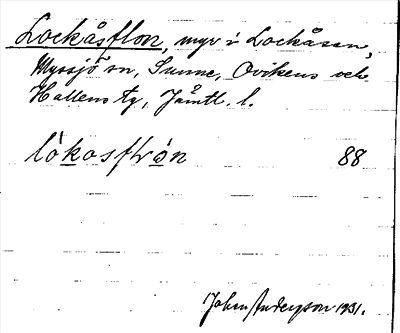 Lockåsflon, myr i Lockåsen,
Myssjö sn, Sunne, Ovikens och
Hallens tg, Jämtl. l.
88
John Anderson 1931.